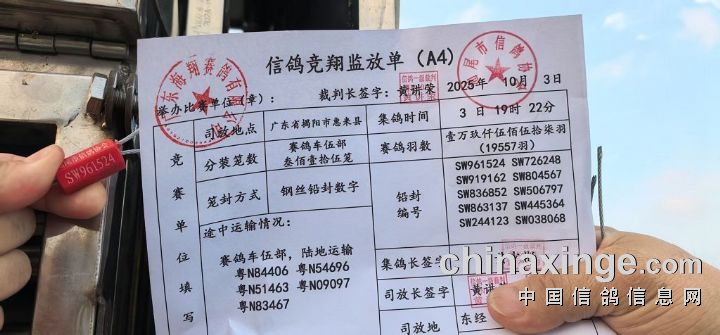 信鸽竞翔监放单（A4）
举办比赛单位（章）：
裁判长签字：
2025年 10月 3日
竞赛单位填写
司放地点
广东省揭阳市惠来县
集鸽时间
3 日 19时 22分
分装笼数
赛鸽车伍部
叁佰壹拾伍笼
赛鸽羽数
壹万玖仟伍佰伍拾柒羽
（19557羽）
笼封方式
钢丝铅封数字
铅封编号
SW961524 SW726248
SW919162 SW804567
SW836852 SW506797
SW863137 SW445364
SW244123 SW038068
途中运输情况：
赛鸽车伍部，陆地运输
粤N84406 粤N54696
粤N51463 粤N09097
粤N83467
集鸽长签字
司放长签字
司放地
东经
SW961524
chinaxinge.com
中国信鸽信息网